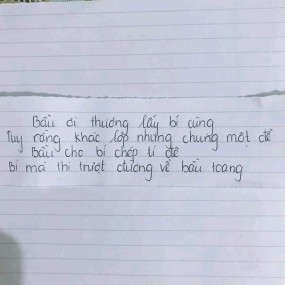 Bầu ơi thương lấy bí cùng
Tuy rằng khác lớp nhưng chung một đề
Bầu cho bí chép tí đề
Bí mà thi trượt đường về bầu toang